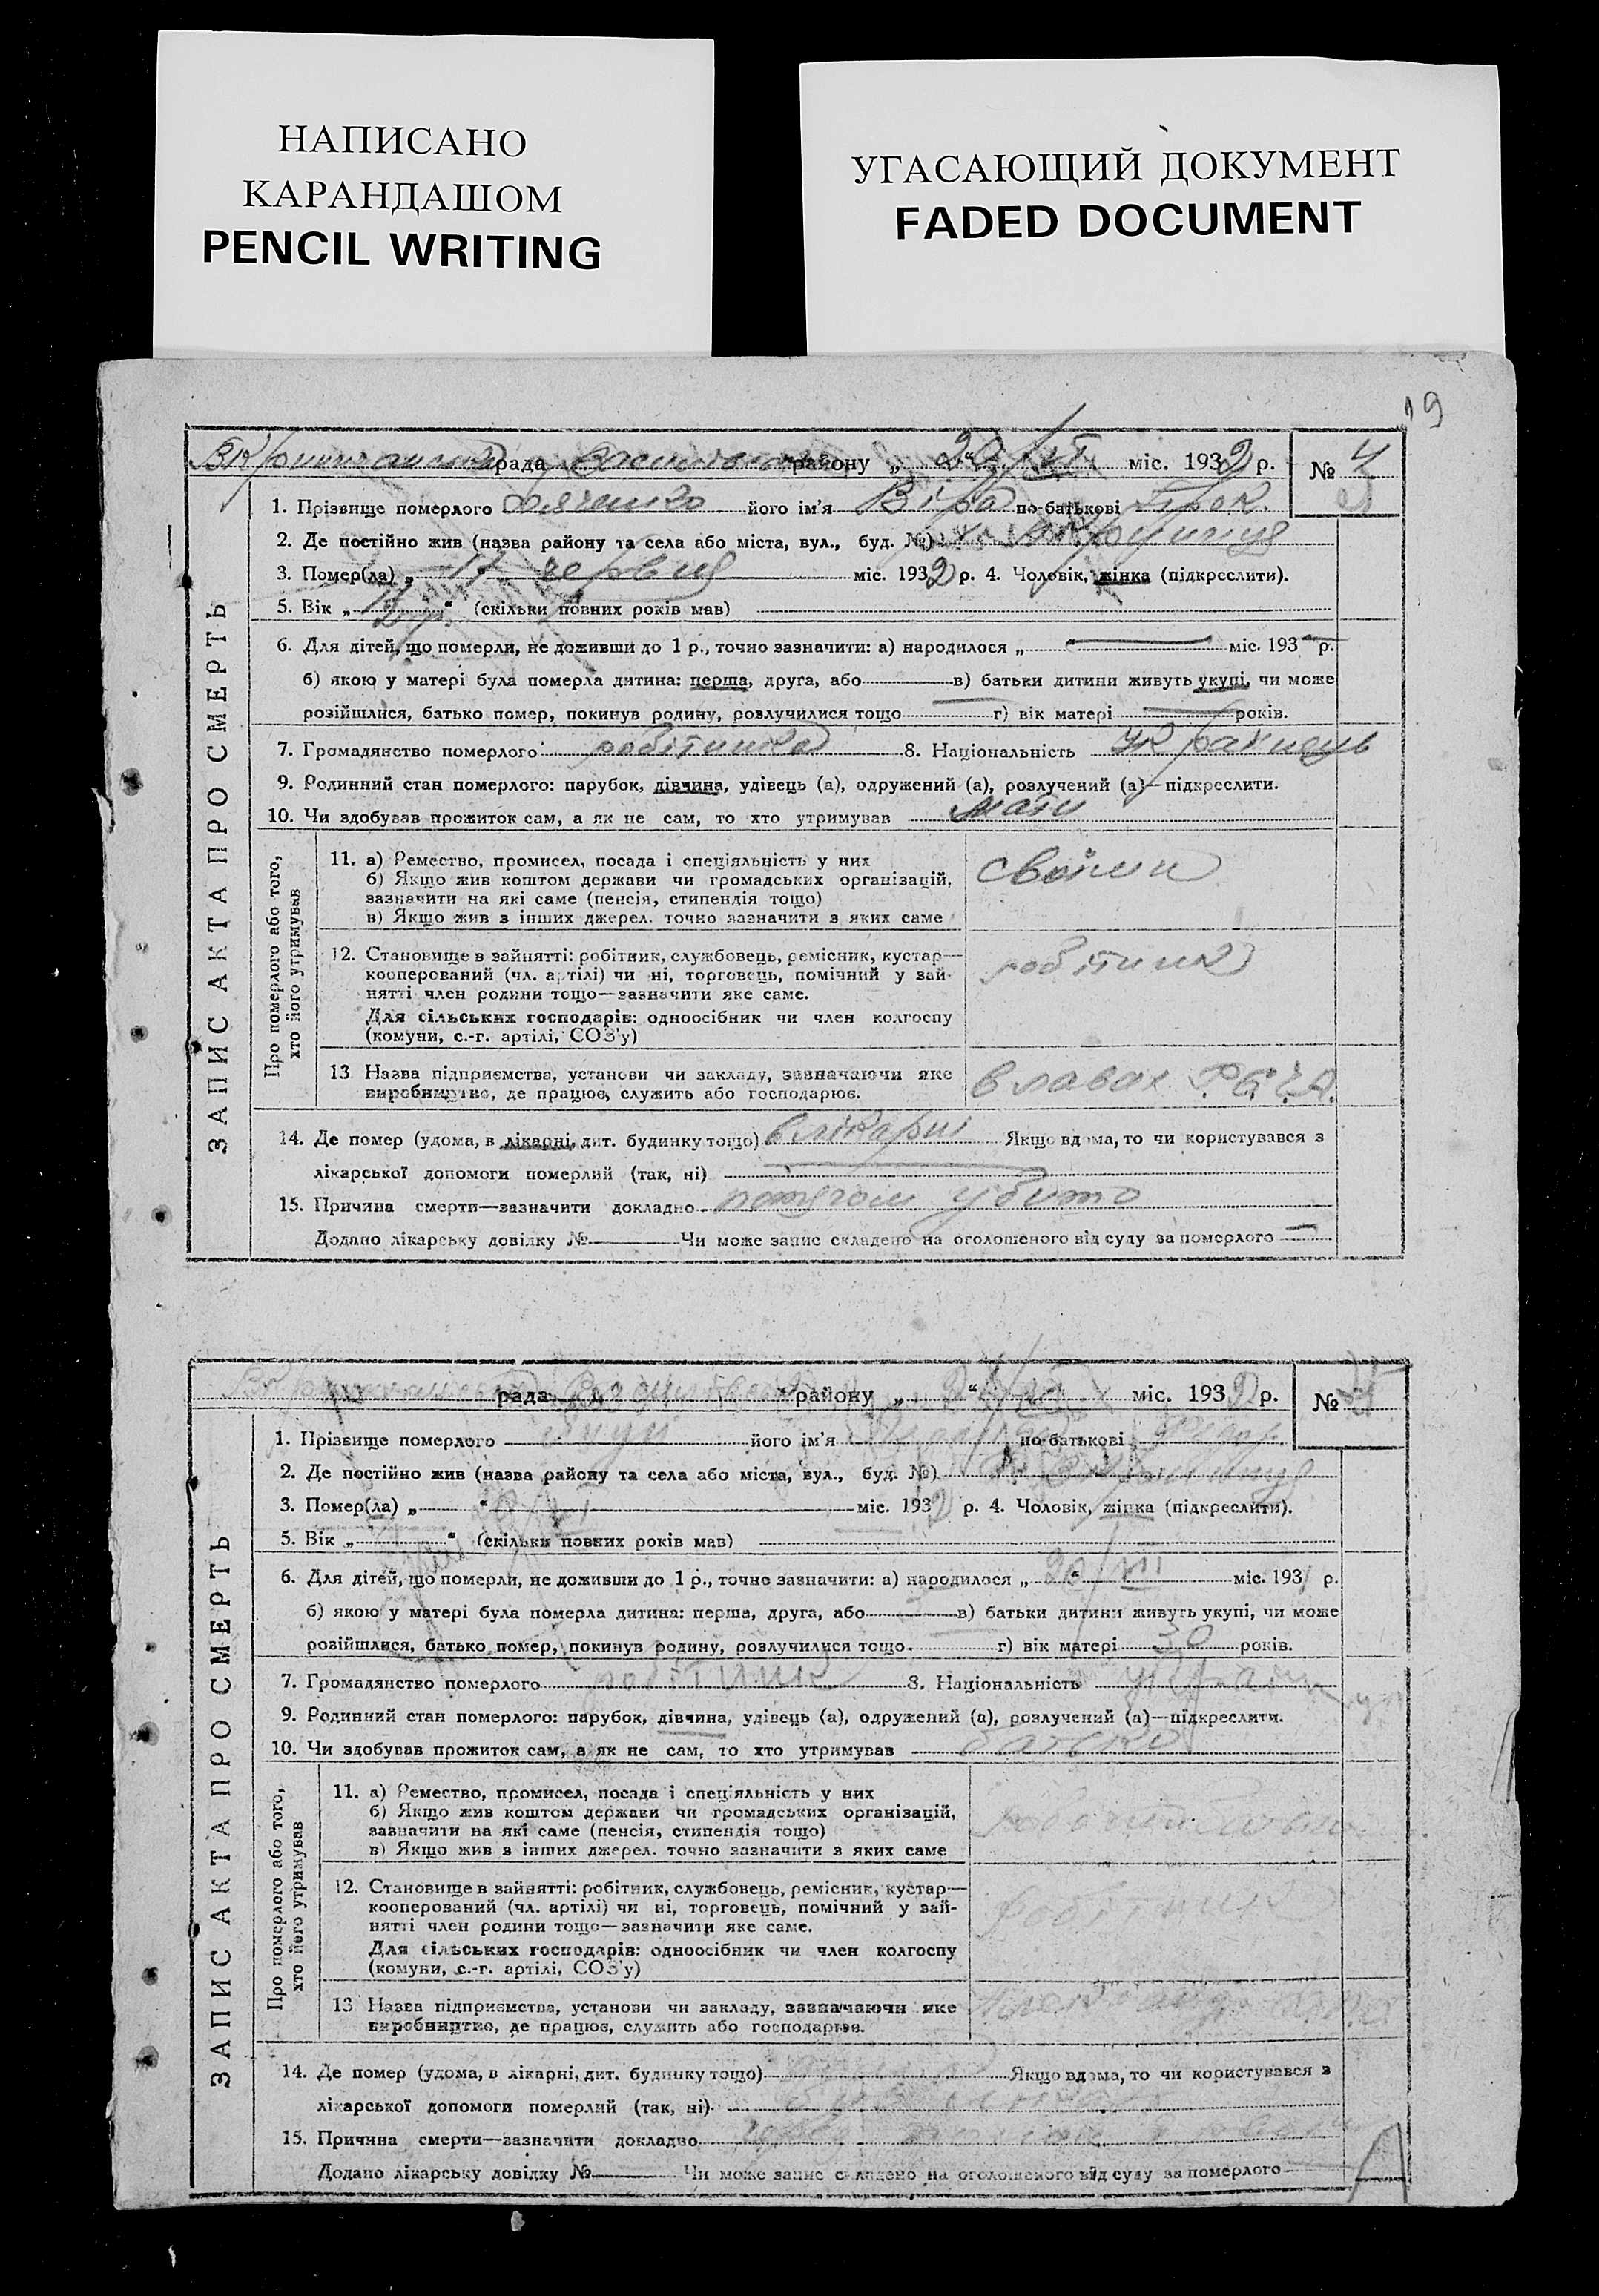 НАПИСАНО
КАРАНДАШОМ
PENCIL WRITING
УГАСАЮЩИЙ ДОКУМЕНТ
FADED DOCUMENT
19
рада району „ 20/VI міс. 1932 р. № 4
ЗАПИС АКТА ПРО СМЕРТЬ
1. Прізвище померлого його ім'я Віра по-батькові
2. Де постійно жив (назва району та села або міста, вул., буд. №)
3. Помер(ла) „ 17 “ червня міс. 1932 р. 4. Чоловік, жінка (підкреслити).
5. Вік „ 12 р. “ (скільки повних років мав)
6. Для дітей, що померли, не доживши до 1 р., точно зазначити: а) народилося „ — міс. 193— р.
б) якою у матері була померла дитина: перша, друга, або — в) батьки дитини живуть укупі, чи може
розійшлися, батько помер, покинув родину, розлучилися тощо — г) вік матері — років.
7. Громадянство померлого робітника 8. Національність українець
9. Родинний стан померлого: парубок, дівчина, удівець (а), одружений (а), розлучений (а)—підкреслити.
10. Чи здобував прожиток сам, а як не сам, то хто утримував мати
Про померлого або того,
хто його утримував
11. а) Ремество, промисел, посада і спеціяльність у них
б) Якщо жив коштом держави чи громадських організацій,
зазначити на які саме (пенсія, стипендія тощо)
в) Якщо жив з інших джерел. точно зазначити з яких саме
12. Становище в зайнятті: робітник, службовець, ремісник, кустар—
кооперований (чл. артілі) чи ні, торговець, помічний у зай-
нятті член родини тощо—зазначити яке саме.
робітник
Для сільських господарів: одноосібник чи член колгоспу
(комуни, с.-г. артілі, СОЗ'у)
13 Назва підприємства, установи чи закладу, зазначаючи яке
виробництво, де працює, служить або господарює.
в лавах
14. Де помер (удома, в лікарні, дит. будинку тощо) в лікарні Якщо вдома, то чи користувався з
лікарської допомоги померлий (так, ні) —
15. Причина смерти—зазначити докладно потягом убито
Додано лікарську довідку № — Чи може запис складено на оголошеного від суду за померлого —
рада району „ “ міс. 1932 р. №
ЗАПИС АКТА ПРО СМЕРТЬ
1. Прізвище померлого його ім'я по-батькові
2. Де постійно жив (назва району та села або міста, вул., буд. №)
3. Помер(ла) „ 20/VI “ міс. 1932 р. 4. Чоловік, жінка (підкреслити).
5. Вік „ “ (скільки повних років мав)
6. Для дітей, що померли, не доживши до 1 р., точно зазначити: а) народилося „ 20/VIII міс. 1931 р.
б) якою у матері була померла дитина: перша, друга, або в) батьки дитини живуть укупі, чи може
розійшлися, батько помер, покинув родину, розлучилися тощо г) вік матері 30 років.
7. Громадянство померлого робітник 8. Національність
9. Родинний стан померлого: парубок, дівчина, удівець (а), одружений (а), розлучений (а)—підкреслити.
10. Чи здобував прожиток сам, а як не сам, то хто утримував батько
Про померлого або того,
хто його утримував
11. а) Ремество, промисел, посада і спеціяльність у них
б) Якщо жив коштом держави чи громадських організацій,
зазначити на які саме (пенсія, стипендія тощо)
в) Якщо жив з інших джерел. точно зазначити з яких саме
12. Становище в зайнятті: робітник, службовець, ремісник, кустар—
кооперований (чл. артілі) чи ні, торговець, помічний у зай-
нятті член родини тощо—зазначити яке саме.
робітник
Для сільських господарів: одноосібник чи член колгоспу
(комуни, с.-г. артілі, СОЗ'у)
13 Назва підприємства, установи чи закладу, зазначаючи яке
виробництво, де працює, служить або господарює.
14. Де помер (удома, в лікарні, дит. будинку тощо) Якщо вдома, то чи користувався з
лікарської допомоги померлий (так, ні)
15. Причина смерти—зазначити докладно
Додано лікарську довідку № — Чи може запис складено на оголошеного від суду за померлого